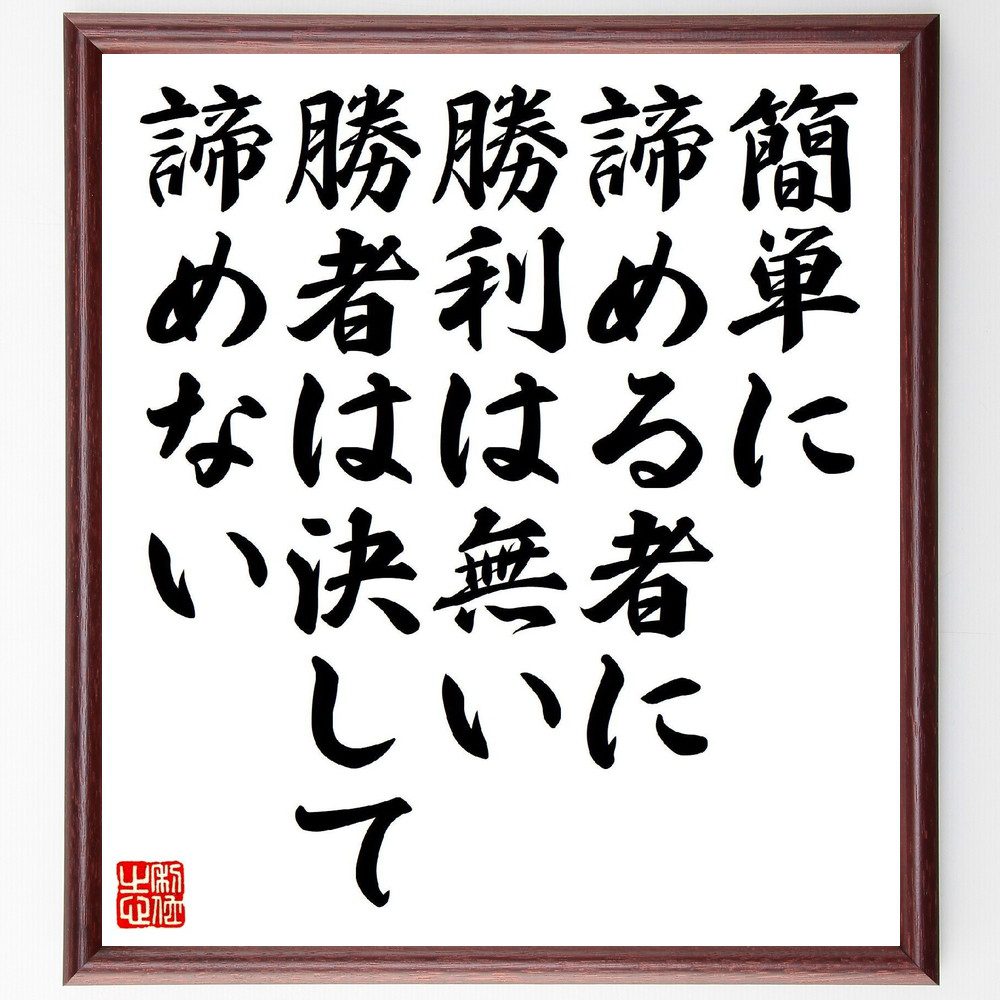 簡単に
諦める者に
勝利は無い
勝者は決して
諦めない